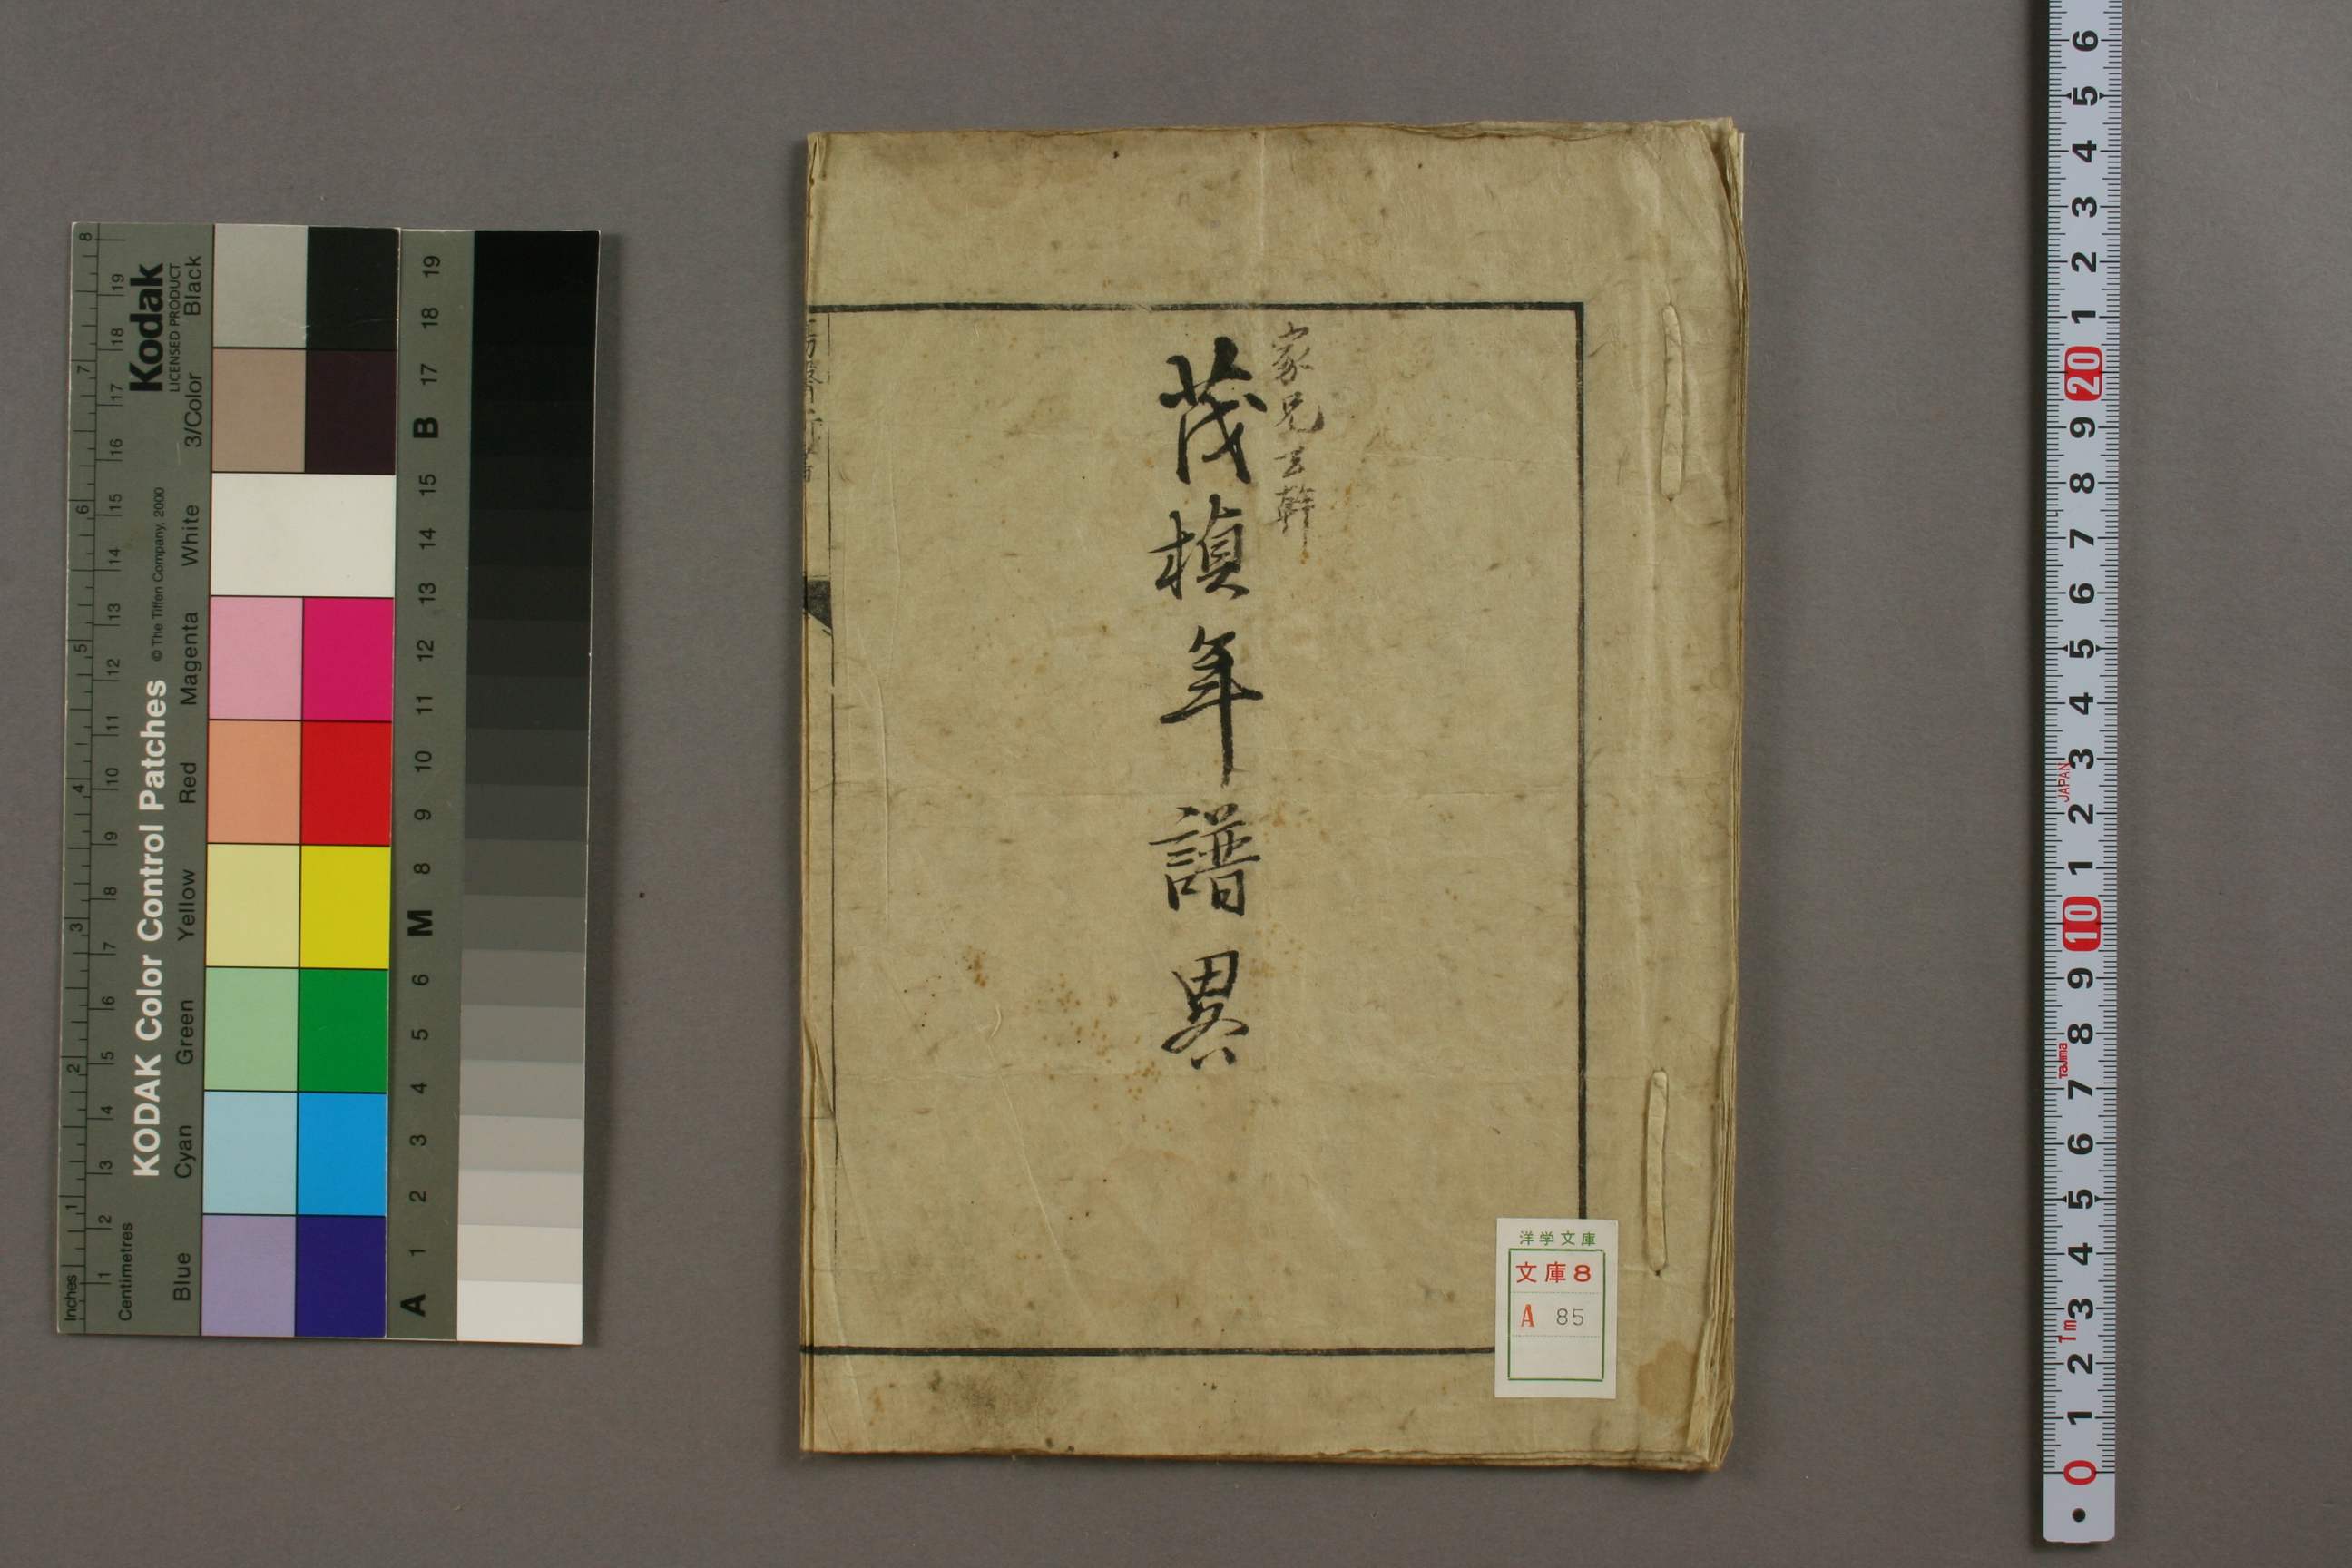 家兄士幹
茂楨年譜畧
洋学文庫
文庫8
A 85
Kodak
LICENSED PRODUCT
KODAK Color Control Patches
© The Tiffen Company, 2000
Blue Cyan Green Yellow Red Magenta White 3/Color Black
Inches 1 2 3 4 5 6 7 8
Centimetres 1 2 3 4 5 6 7 8 9 10 11 12 13 14 15 16 17 18 19
A 1 2 3 4 5 6 M 8 9 10 11 12 13 14 15 B 17 18 19
0 1 2 3 4 5 6 7 8 9 10 1 2 3 4 5 6 7 8 9 20 1 2 3 4 5 6
1m
Tajima
JAPAN